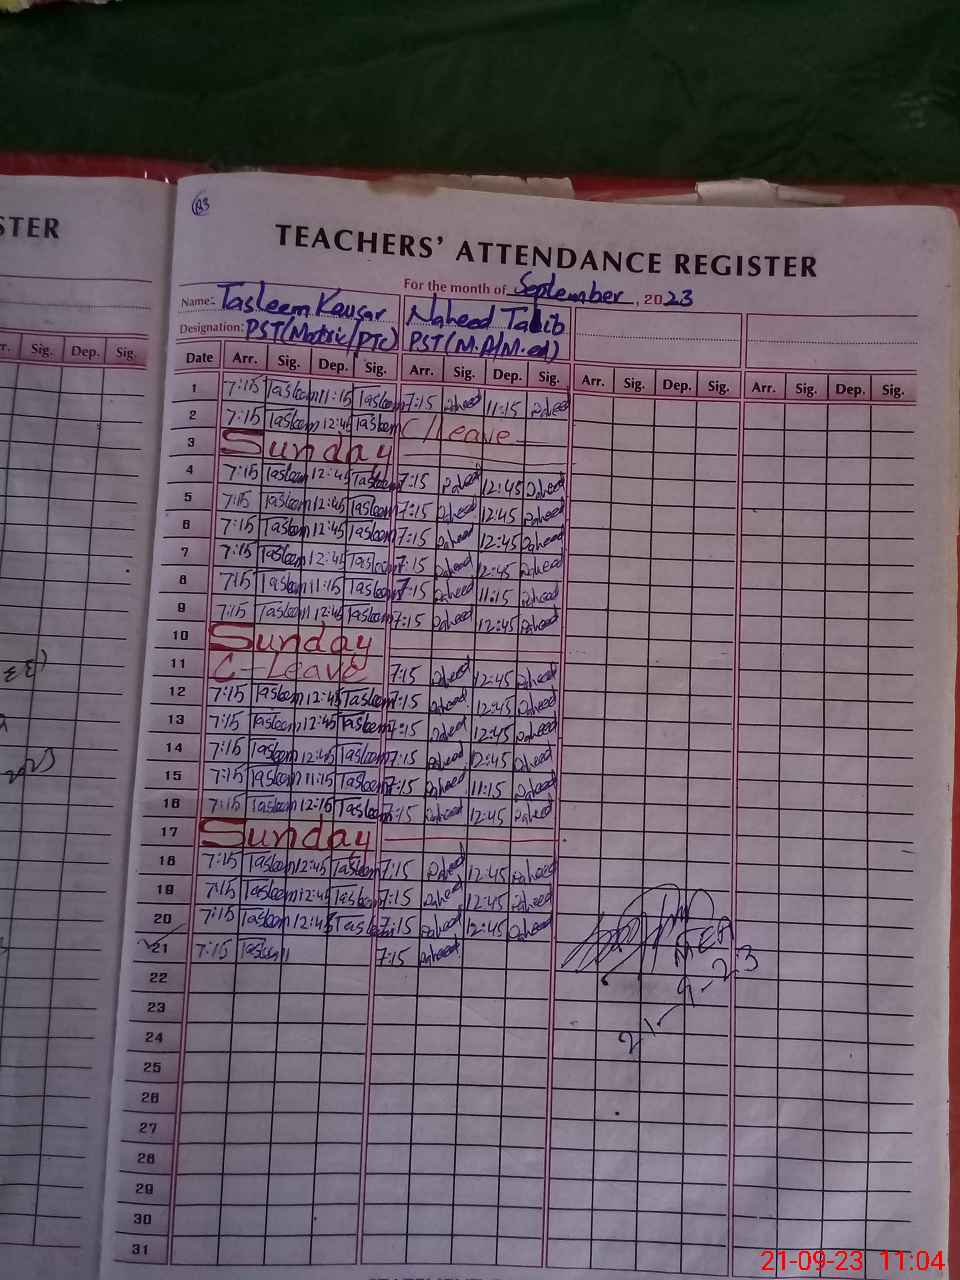 STER
TEACHERS' ATTENDANCE REGISTER
For the month of September, 2023
Name: Tasleem Kausar Naheed Talib
Designation: PST(Matric/PTC) PST(M.A/M.ed)
r. Sig. Dep. Sig.
Date Arr. Sig. Dep. Sig. Arr. Sig. Dep. Sig. Arr. Sig. Dep. Sig. Arr. Sig. Dep. Sig.
1 7:15 Tasleem 11:15 Tasleem 7:15 Naheed 11:15 Naheed
2 7:15 Tasleem 12:45 Tasleem C/Leave
3 Sunday
4 7:15 Tasleem 12:45 Tasleem 7:15 Naheed 12:45 Naheed
5 7:15 Tasleem 12:45 Tasleem 7:15 Naheed 12:45 Naheed
6 7:15 Tasleem 12:45 Tasleem 7:15 Naheed 12:45 Naheed
7 7:15 Tasleem 12:45 Tasleem 7:15 Naheed 12:45 Naheed
8 7:15 Tasleem 11:15 Tasleem 7:15 Naheed 11:15 Naheed
9 7:15 Tasleem 12:45 Tasleem 7:15 Naheed 12:45 Naheed
10 Sunday
11 C-Leave 7:15 Naheed 12:45 Naheed
12 7:15 Tasleem 12:45 Tasleem 7:15 Naheed 12:45 Naheed
13 7:15 Tasleem 12:45 Tasleem 7:15 Naheed 12:45 Naheed
14 7:15 Tasleem 12:45 Tasleem 7:15 Naheed 12:45 Naheed
15 7:15 Tasleem 11:15 Tasleem 7:15 Naheed 11:15 Naheed
16 7:15 Tasleem 12:15 Tasleem 7:15 Naheed 12:45 Naheed
17 Sunday
18 7:15 Tasleem 12:45 Tasleem 7:15 Naheed 12:45 Naheed
19 7:15 Tasleem 12:45 Tasleem 7:15 Naheed 12:45 Naheed
20 7:15 Tasleem 12:45 Tasleem 7:15 Naheed 12:45 Naheed
21 7:15 Tasleem 7:15 Naheed
MEA
21-9-23
22
23
24
25
26
27
28
29
30
31
21-09-23 11:04